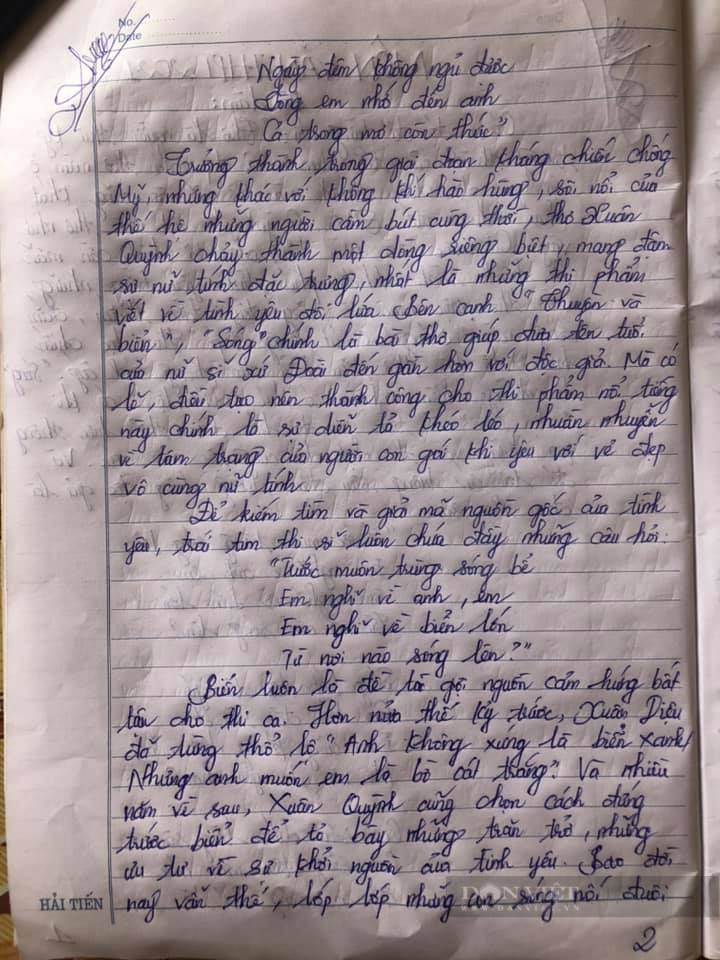 No.
Date
Ngày đêm không ngủ được
Lòng em nhớ đến anh
Cả trong mơ còn thức"
Trưởng thành trong giai đoạn kháng chiến chống
Mỹ, nhưng khác với không khí hào hùng, sôi nổi của
thế hệ những người cầm bút cùng thời, thơ Xuân
Quỳnh chảy thành một dòng riêng biệt, mang đậm
sự nữ tính đặc trưng, nhất là những thi phẩm
viết về tình yêu đôi lứa. Bên cạnh "Thuyền và
biển", "Sóng" chính là bài thơ giúp đưa tên tuổi
của nữ sĩ xứ Đoài đến gần hơn với độc giả. Mà có
lẽ, điều tạo nên thành công cho thi phẩm nổi tiếng
này chính là sự diễn tả khéo léo, nhuần nhuyễn
về tâm trạng của người con gái khi yêu với vẻ đẹp
vô cùng nữ tính.
Để kiếm tìm và giải mã nguồn gốc của tình
yêu, trái tim thi sĩ luôn chứa đầy những câu hỏi:
"Trước muôn trùng sóng bể
Em nghĩ về anh, em
Em nghĩ về biển lớn
Từ nơi nào sóng lên?"
Biển luôn là đề tài gợi nguồn cảm hứng bất
tận cho thi ca. Hơn nửa thế kỷ trước, Xuân Diệu
đã từng thổ lộ "Anh không xứng là biển xanh/
Nhưng anh muốn em là bờ cát trắng". Và nhiều
năm về sau, Xuân Quỳnh cũng chọn cách đứng
trước biển để tỏ bày những trăn trở, những
ưu tư về sự khởi nguồn của tình yêu. Bao đời
nay vẫn thế, lớp lớp những con sóng nối đuôi
HẢI TIẾN
DÂN VIỆT
2